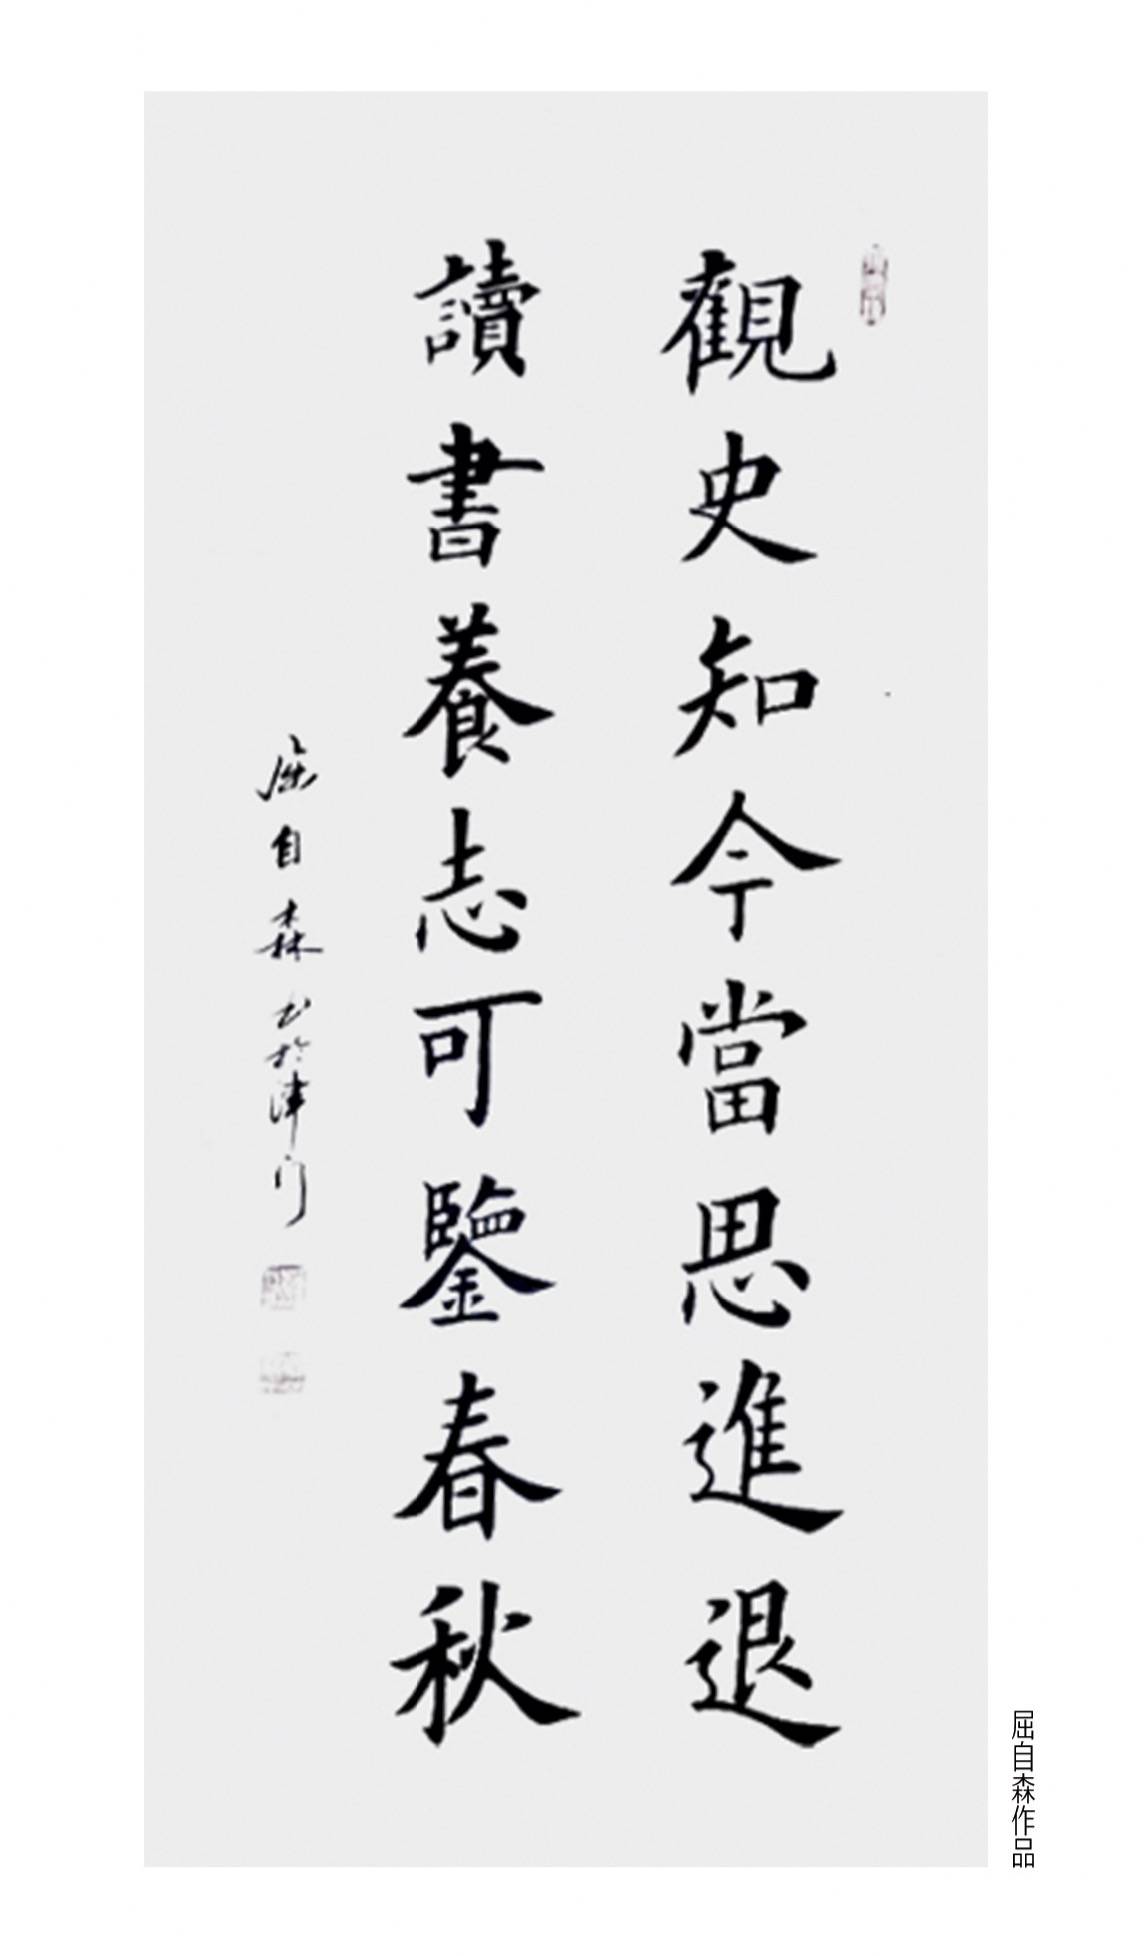 觀史知今當思進退
讀書養志可鑒春秋
屈自森书於津门
屈自森作品